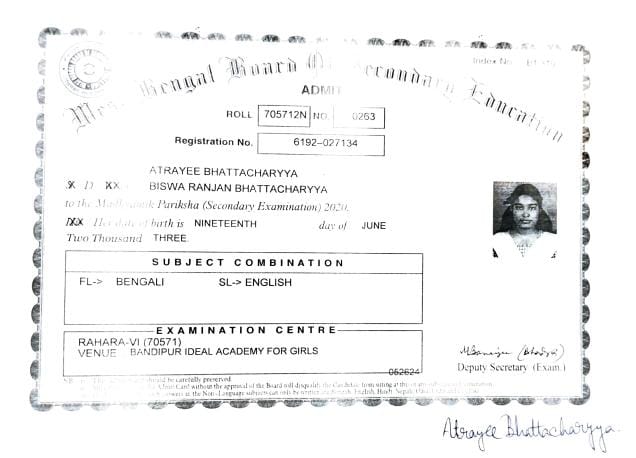 Index No.
West Bengal Board Of Secondary Education
ADMIT
ROLL 705712N NO. 0263
Registration No. 6192-027134
ATRAYEE BHATTACHARYYA
D BISWA RANJAN BHATTACHARYYA
to the Madhyamik Pariksha (Secondary Examination) 2020.
Her date of birth is NINETEENTH day of JUNE
Two Thousand THREE.
SUBJECT COMBINATION
FL-> BENGALI SL-> ENGLISH
EXAMINATION CENTRE
RAHARA-VI (70571)
VENUE BANDIPUR IDEAL ACADEMY FOR GIRLS
052624
Deputy Secretary (Exam.)
should be carefully preserved.
Card without the approval of the Board will disqualify the Candidate from sitting at the
answers at the Non-Language subjects can only be written in Bengali, English, Hindi, Nepali,
Atrayee Bhattacharyya.